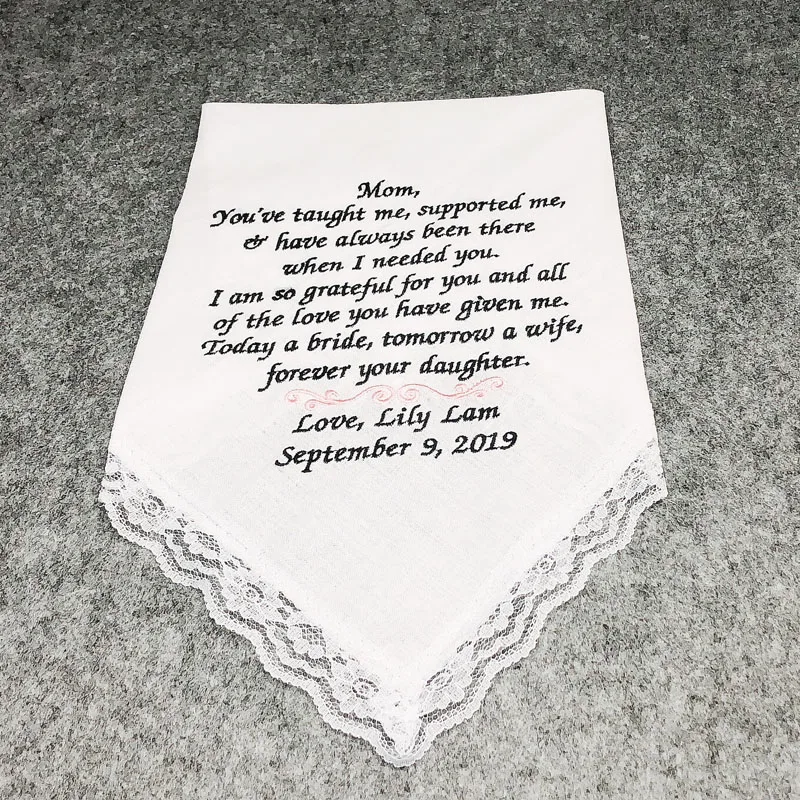 Mom,
You've taught me, supported me,
& have always been there
when I needed you.
I am so grateful for you and all
of the love you have given me.
Today a bride, tomorrow a wife,
forever your daughter.
Love, Lily Lam
September 9, 2019